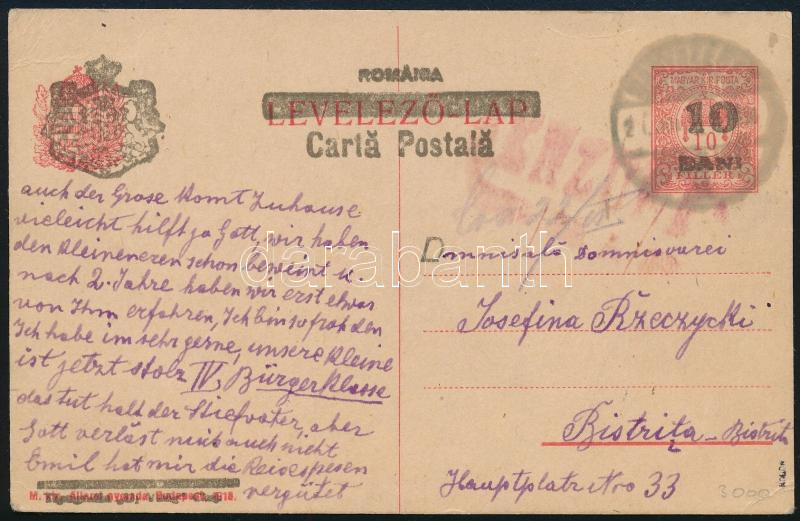 ROMÂNIA
LEVELEZŐ-LAP
Cartă Poștală
MAGYAR KIR. POSTA
10
10
BANI
FILLÉR
auch der Grose komt Zuhause
vieleicht hilft ja Gott, wir haben
den Kleineneren schon beweint u.
nach 2. Jahre haben wir erst etwas
von Ihm erfahren, Ich bin so froh den
Ich habe im sehr gerne, unsere Kleine
ist jetzt stolz IV. Bürgerklasse
das tut halt der Stiefvater, aber
Gott verläst mich auch nicht
Emil hat mir die Reisespesen
vergütet
Domnisală Domnisoarei
Josefina Rzeczycki
Bistrița - Bistrița
Hauptplatz Nro 33
M. kir. Állami nyomda. Budapest. 1918.
3000
darabanth